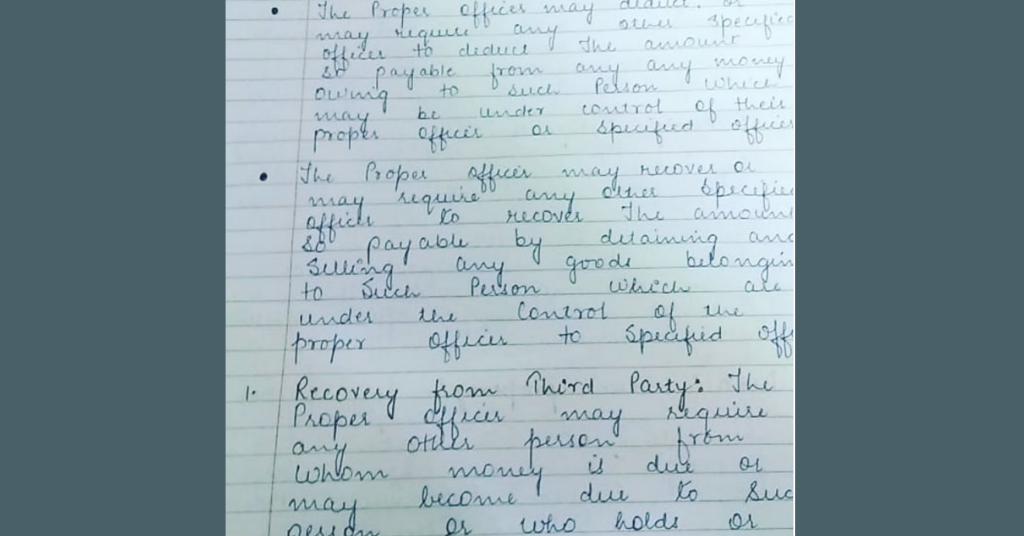 • The Proper officer may deduct or
may require any other specified
officer to deduct the amount
so payable from any any money
owing to such Person which
may be under control of their
proper officer or specified officer
• The Proper officer may recover or
may require any other specifie
officer to recover the amoun
so payable by detaining and
selling any goods belongin
to such Person which are
under the Control of the
proper officer to specified off
1. Recovery from Third Party: The
Proper officer may require
any other person from
whom money is due or
may become due to suc
person or who holds or